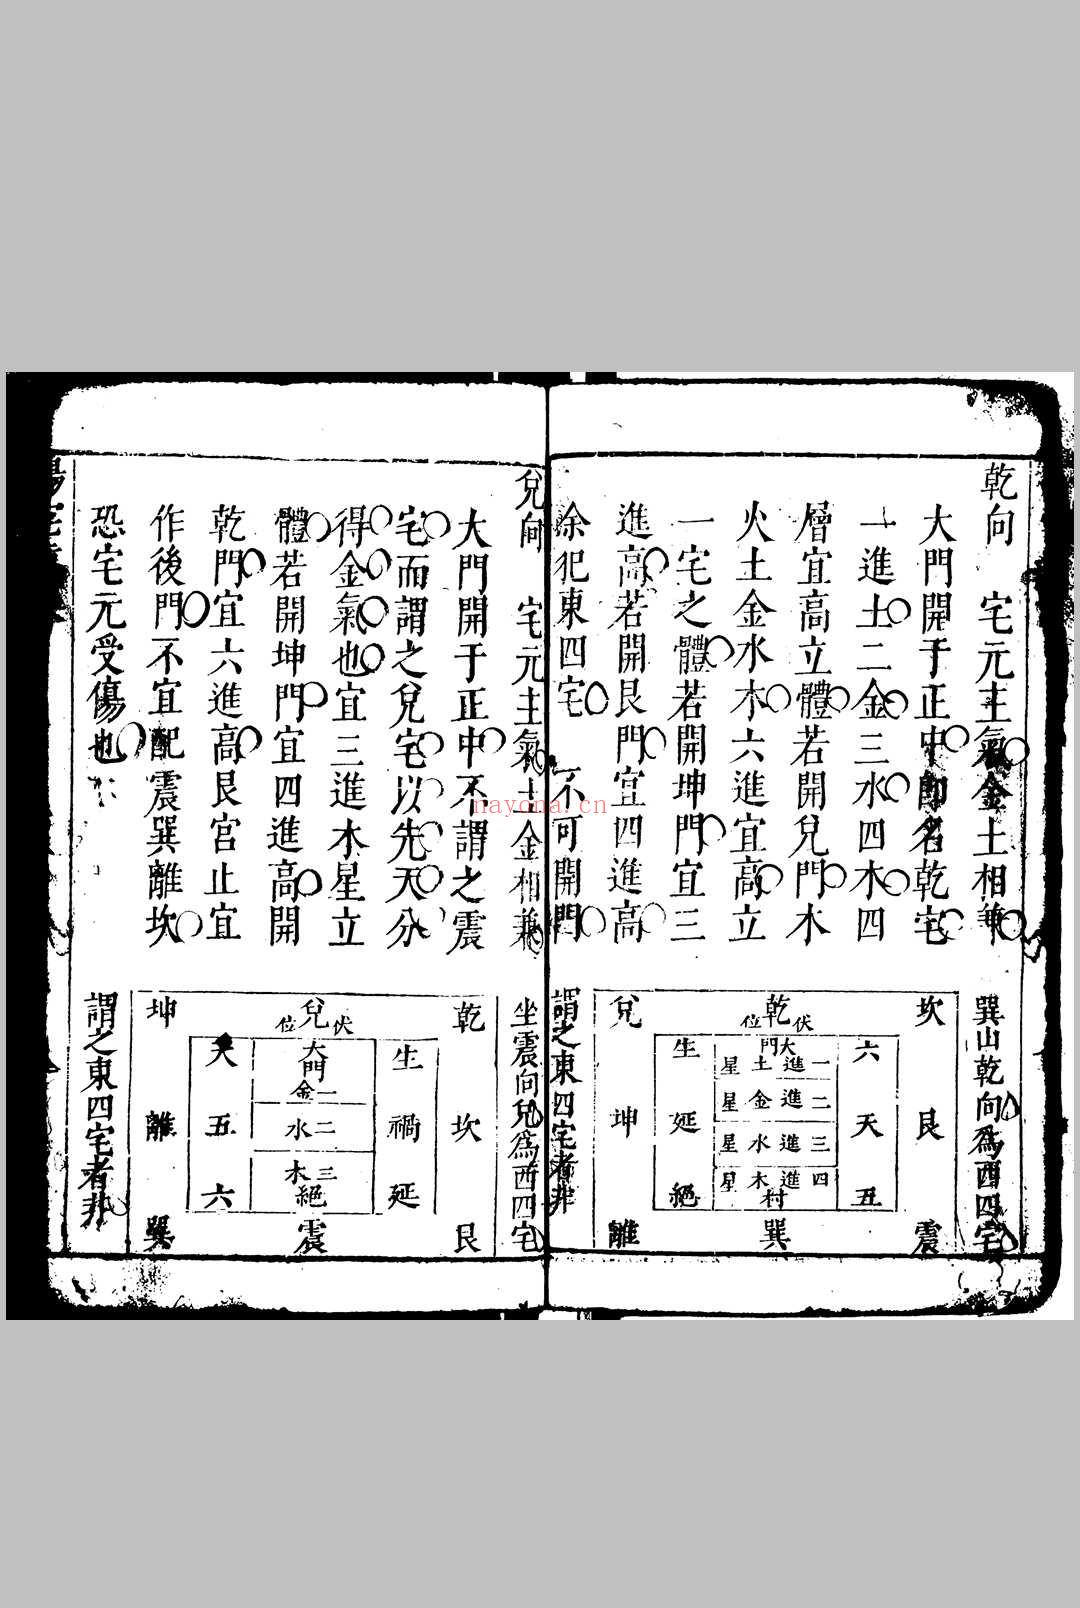 乾向 宅元主氣金土相兼
大門開于正中即名乾宅
一進土二金三水四木四
層宜高立體若開兌門木
火土金水木六進宜高立
一宅之體若開坤門宜三
進高若開艮門宜四進高
餘犯東四宅 不可開門
巽山乾向爲西四宅
坎 艮 震
六 天 五
乾
伏位
大門
一進土星
二進金星
三進水星
四進木星
村
巽
生 延 絕
兌 坤 離
謂之東四宅者非
兌向 宅元主氣土金相兼
大門開于正中不謂之震
宅而謂之兌宅以先天分
得金氣也宜三進木星立
體若開坤門宜四進高開
乾門宜六進高艮宮止宜
作後門不宜配震巽離坎
恐宅元受傷也
坐震向兌爲西四宅
乾 坎 艮
生 禍 延
兌
伏位
大門
一金
二水
三木
絕
震
天 五 六
坤 離 巽
謂之東四宅者非
nayona.cn